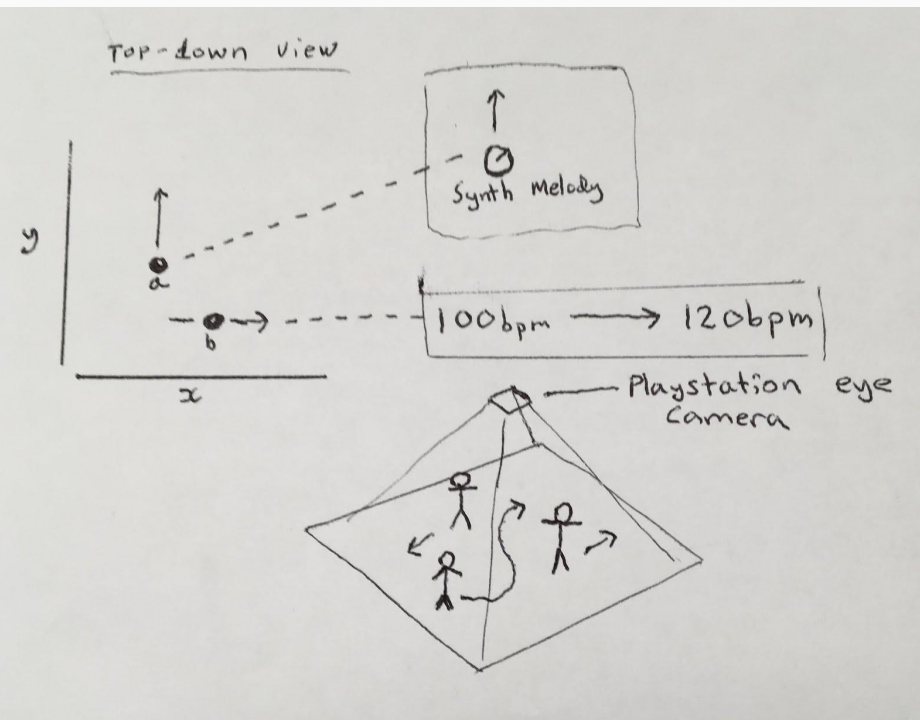 Top-down view
y
a
b
x
Synth Melody
100bpm → 120bpm
Playstation eye
Camera